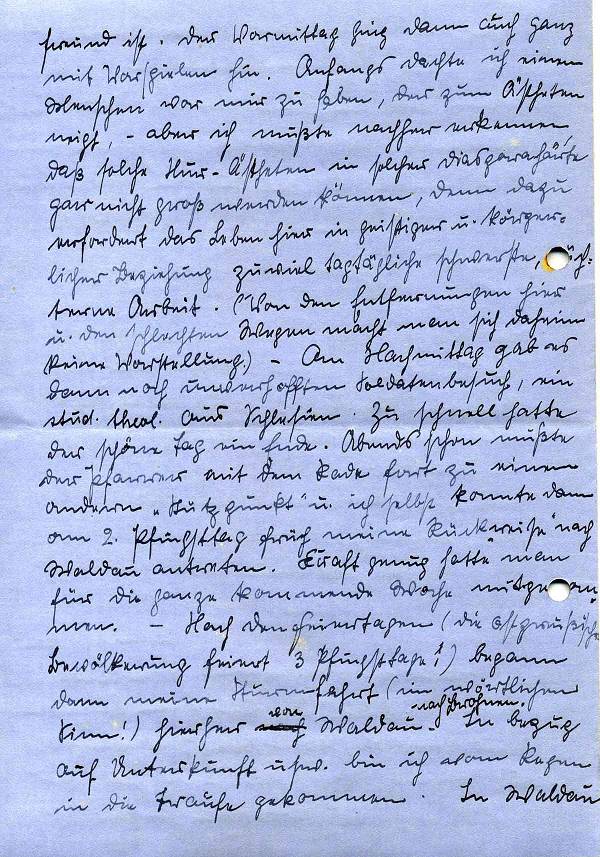 freund ist. Der Vormittag ging dann auch ganz
mit Vorspielen hin. Anfangs dachte ich einen
Menschen vor mir zu haben, der zum Ästheten
neigt, - aber ich mußte nachher erkennen,
daß solche Nur-Ästheten in solcher Diasporahärte
gar nicht groß werden können, denn dazu
erfordert das Leben hier in geistiger u. körper-
licher Beziehung zuviel tagtägliche schwerste,
terne Arbeit. (Von den Entfernungen hier
u. den schlechten Wegen macht man sich daheim
keine Vorstellung.) - Am Nachmittag gab es
dann noch unverhofften Soldatenbesuch, ein
stud. theol. aus Schlesien. Zu schnell hatte
der schöne Tag ein Ende. Abends schon mußte
der Pfarrer mit dem Rade fort zu einem
andern „Stützpunkt" u. ich selbst konnte dann
am 2. Pfingsttag früh meine "Rückreise" nach
Waldau antreten. Kraft genug hatte man
für die ganze kommende Woche mitgenom-
men. - Nach den Feiertagen (die ostpreußische
Bevölkerung feiert 3 Pfingsttage!) begann
dann meine Sturmfahrt (im wörtlichen
Sinn!) hierher von Waldau nach Drohnen. In bezug
auf Unterkunft usw. bin ich vom Regen
in die Traufe gekommen. In Waldau